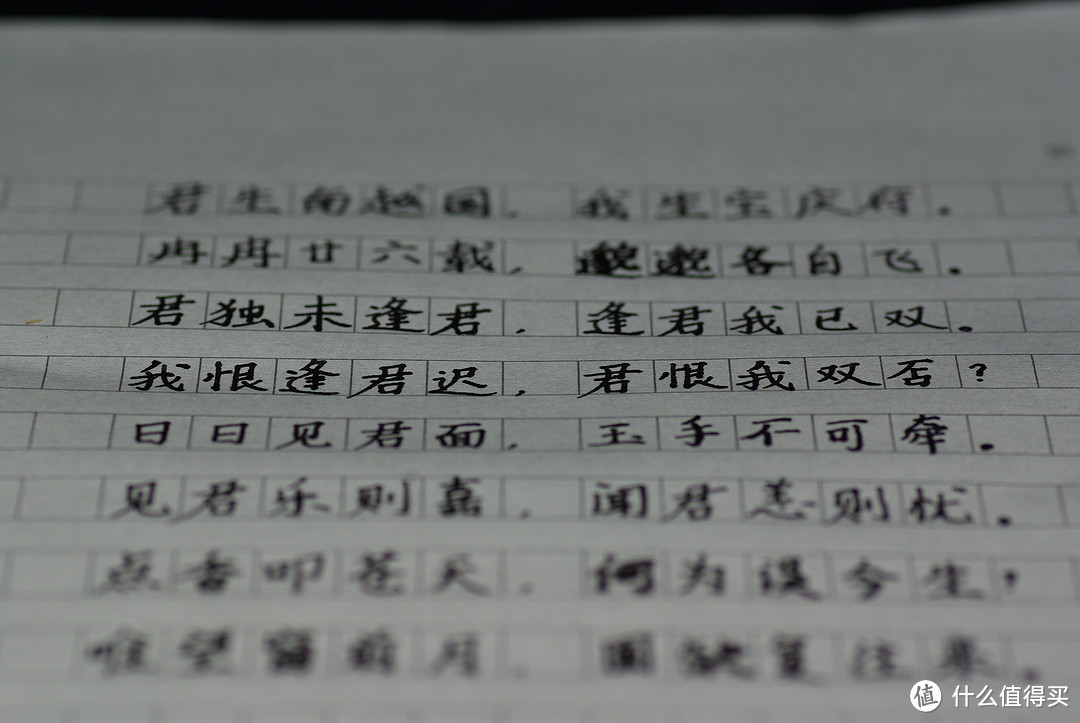 君生向越国，我生宝庆府。
冉冉廿六载，邈邈各自飞。
君独未逢君，逢君我已双。
我恨逢君迟，君恨我双否？
日日见君面，玉手不可牵。
见君乐则嘉，闻君恙则忧。
点香叩苍天，何为误今生？
唯望窗前月，圆缺复注寒。
值 什么值得买